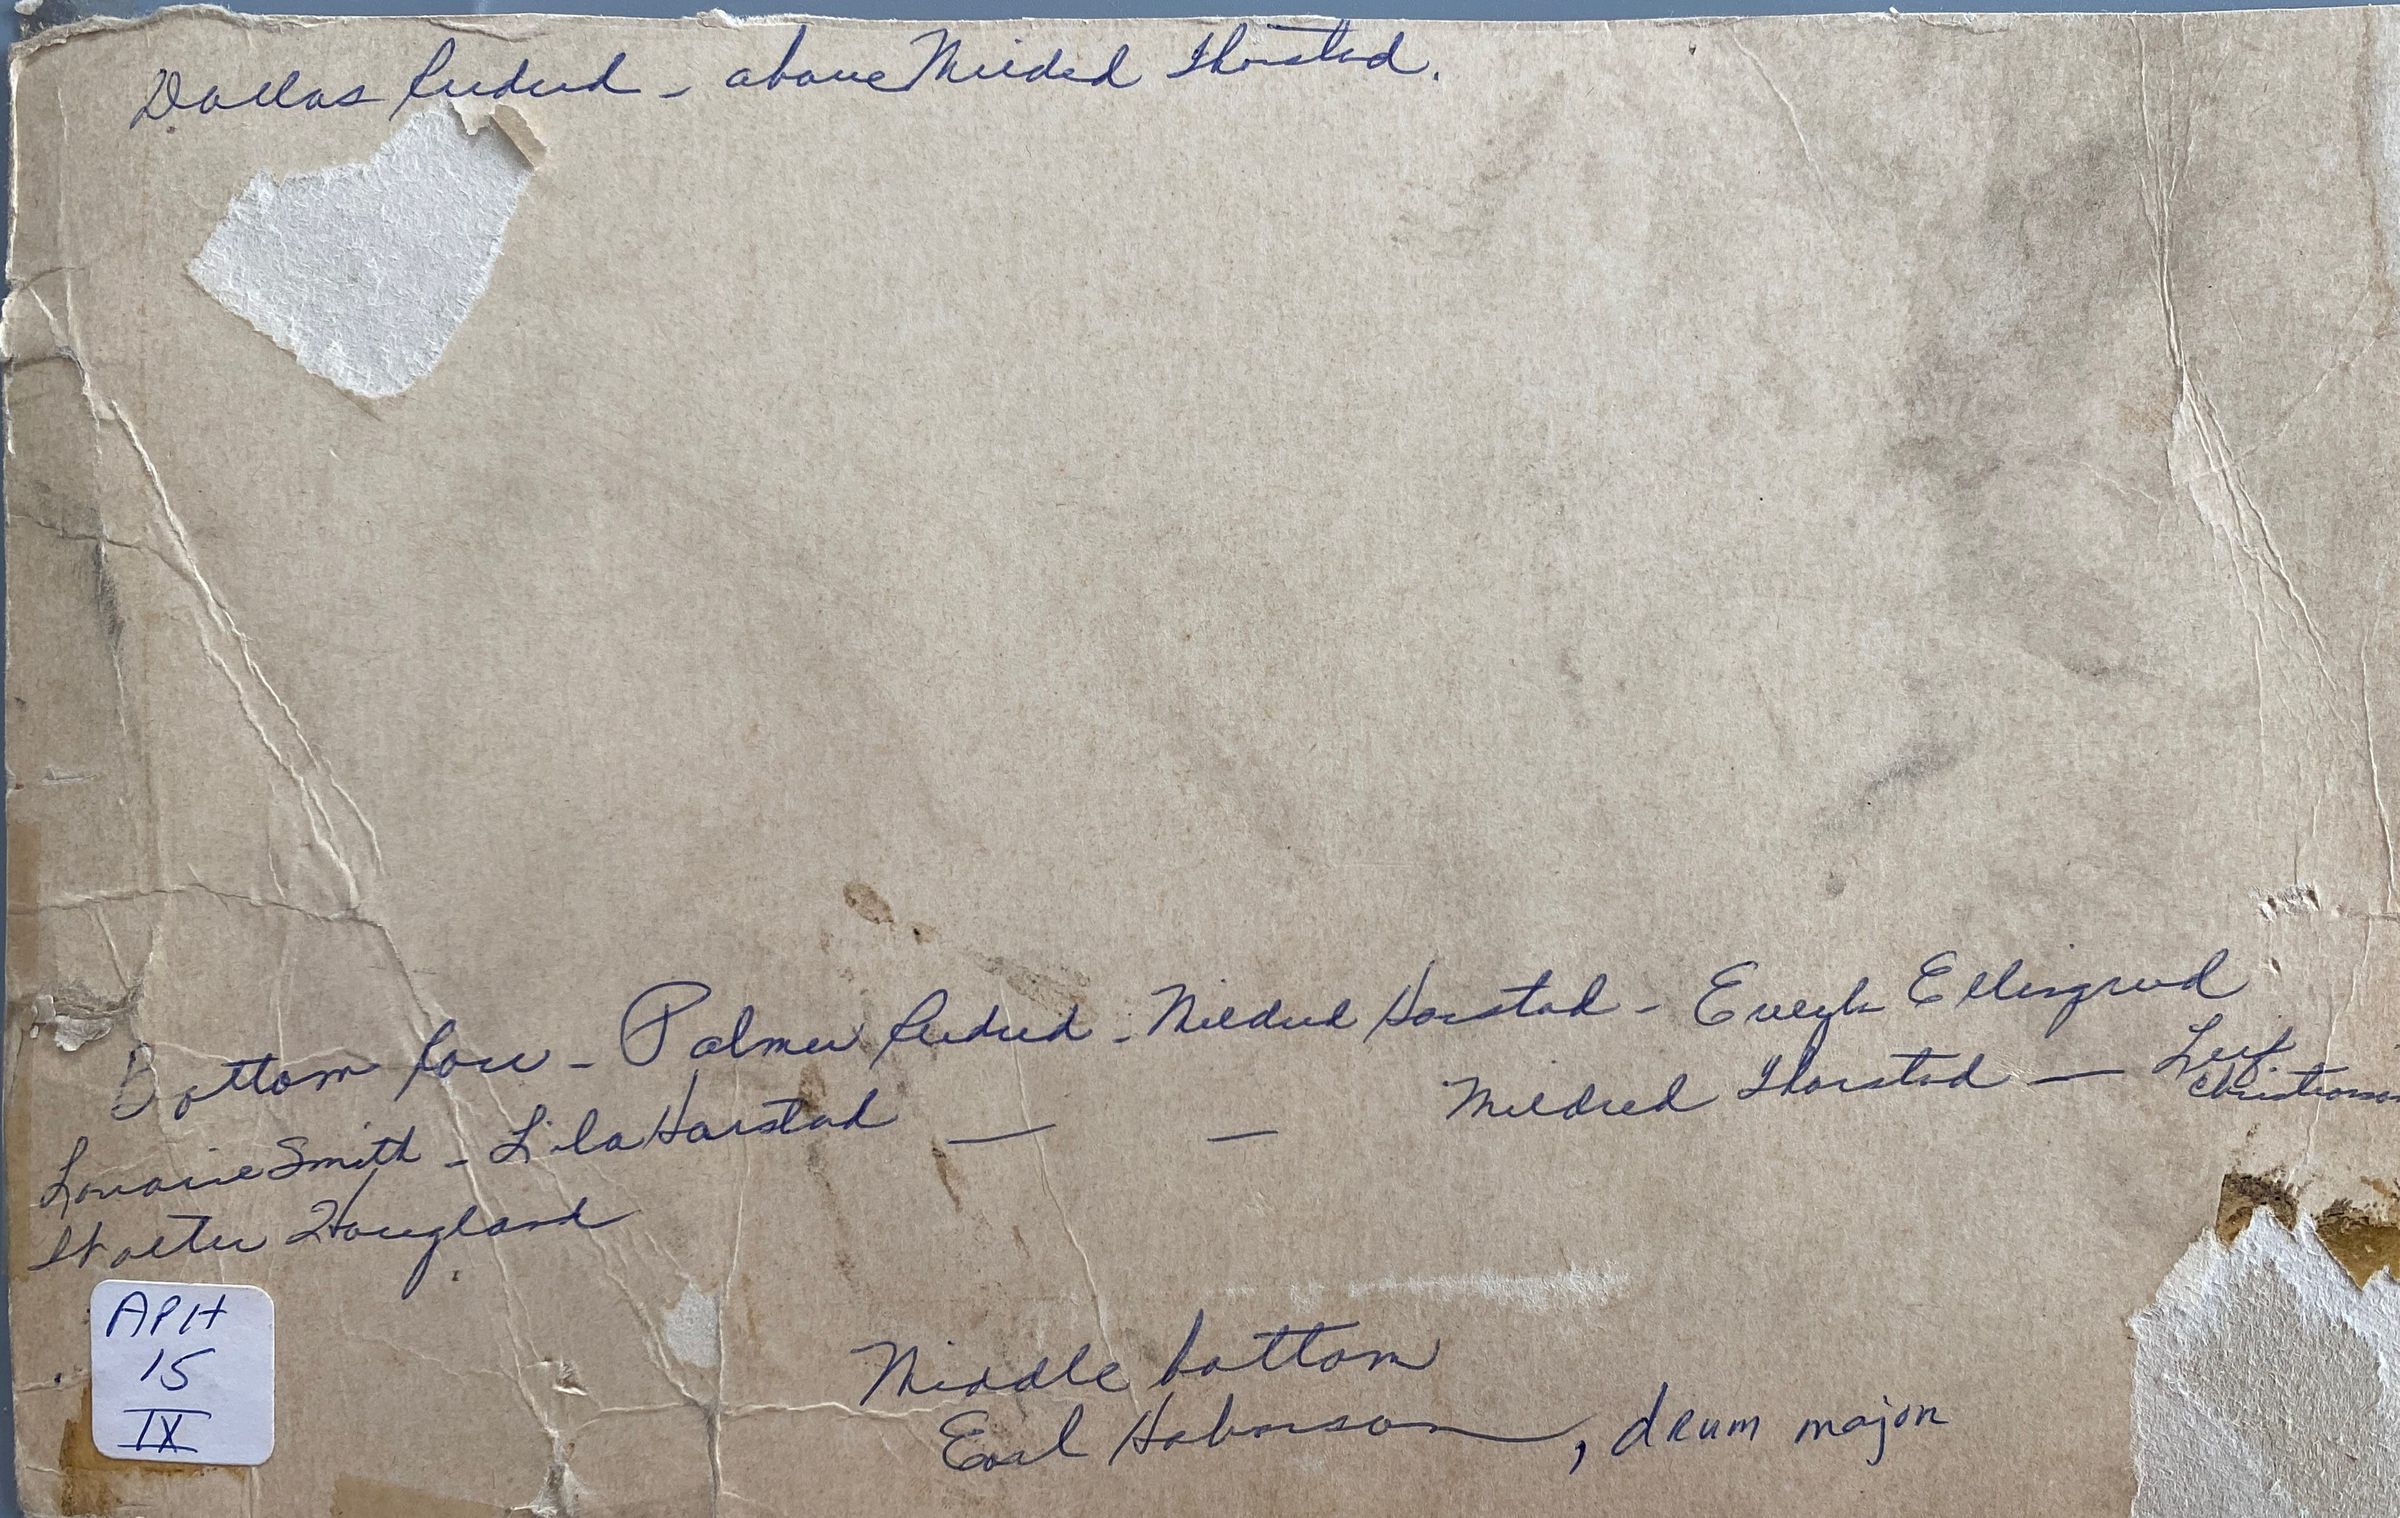 Dallas Rudrud - above Mildred Thorstad.
Bottom Row - Palmer Rudrud - Mildred Harstad - Evelyn Ellingrud
Lorraine Smith - Lila Harstad — — Mildred Thorstad — Leif Christianson
Walter Hougland
APH
15
IX
Middle bottom
Earl Halvorson, drum major